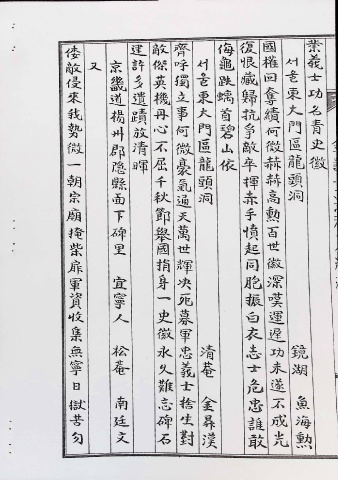 葉義士功名靑史徵
서울東大門區龍頭洞 鏡湖 魚海勲
國權回奪績何微赫赫高勲百世徽深嘆運遲功未遂不成光
復恨藏歸抗爭敵卒揮赤手憤起同胞振白衣志士危忠誰敢
侮龜趺螭首碧山依
서울東大門區龍頭洞 淸菴 金昇漢
齊呼獨立事何微豪氣通天萬世輝决死募軍忠義士捨生對
敵傑英機丹心不屈千秋節擧國捐身一史徽永久難忘碑石
建許多遺蹟放淸暉
京畿道楊州郡隱縣面下碑里 宜寧人 松菴 南廷文
又
倭敵侵來我勢微一朝宗廟掩柴扉軍資收集無寧日獄苦勿